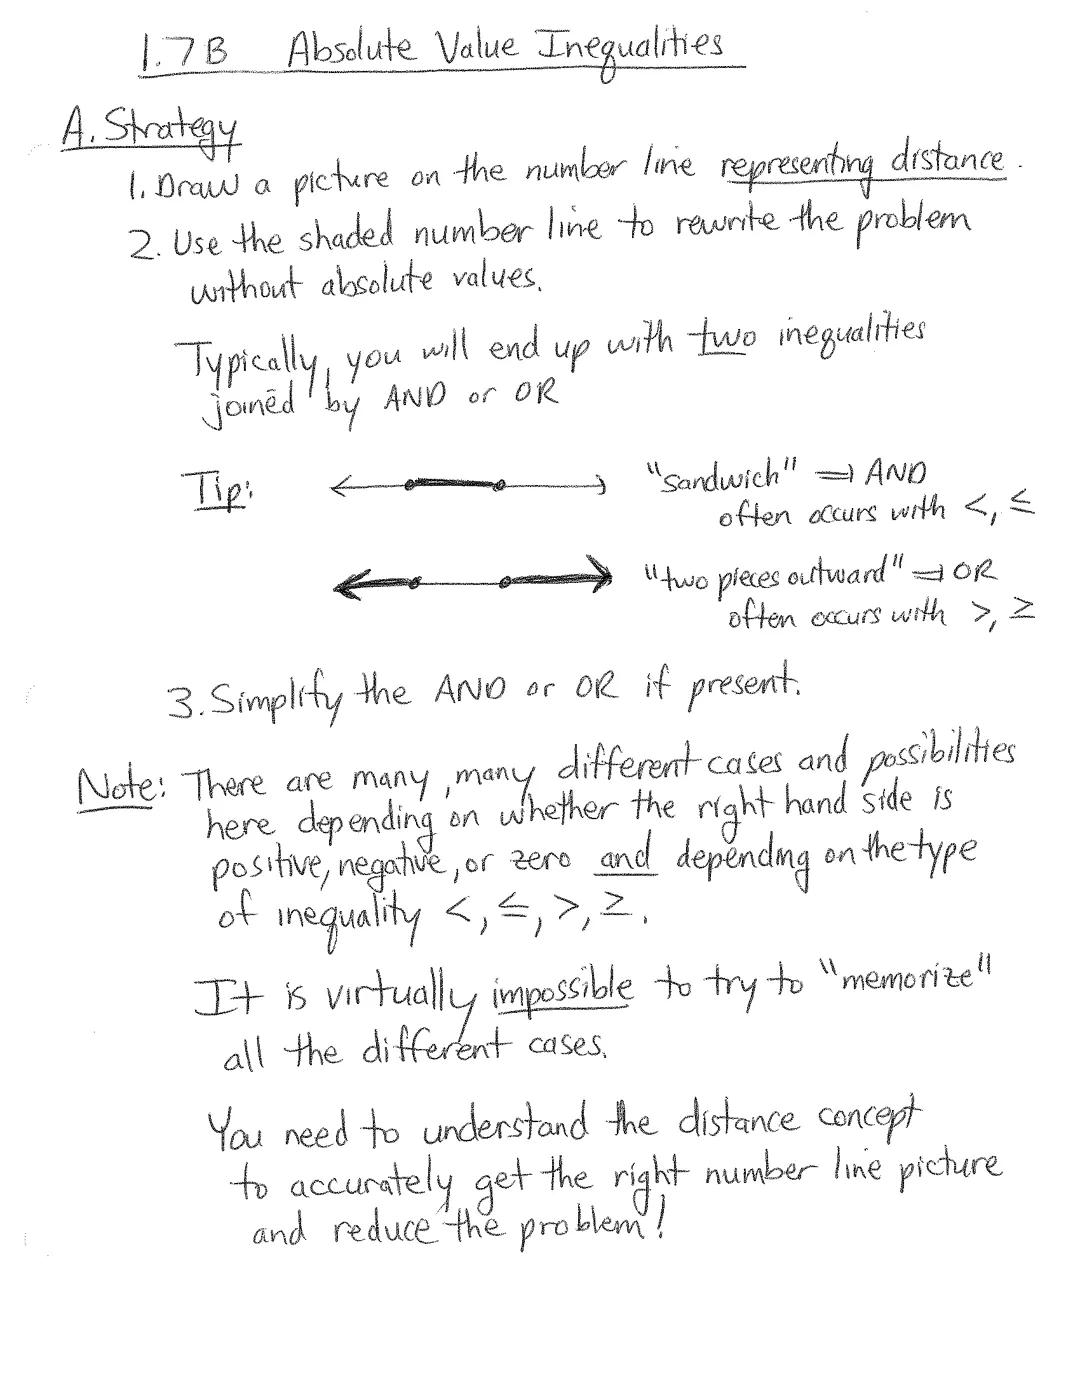 1.7B Absolute Value Inequalities
A. Strategy
1. Draw a picture on the number line representing distance.
2. Use the shaded number line to rewrite the problem
without absolute values.
Typically, you will end up with two inequalities
joined by AND or OR
Tip: "sandwich" ⇒ AND
often occurs with <, ≤
"two pieces outward" ⇒ OR
often occurs with >, ≥
3. Simplify the AND or OR if present.
Note: There are many, many different cases and possibilities
here depending on whether the right hand side is
positive, negative, or zero and depending on the type
of inequality <, ≤, >, ≥.
It is virtually impossible to try to "memorize"
all the different cases.
You need to understand the distance concept
to accurately get the right number line picture
and reduce the problem!